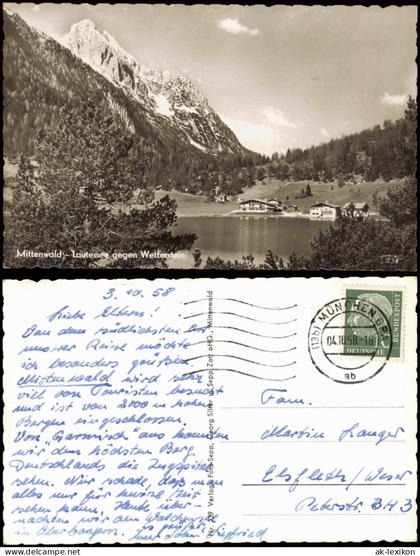 Mittenwald - Lautersee gegen Wetterstein
3. 10. 58
Liebe Eltern!
Von dem südlichsten Ort
unserer Reise möchte
ich besonders grüßen
Mittenwald wird sehr
viel von Touristen besucht
und ist von 2000 m hohen
Bergen eingeschlossen.
Von "Garmisch" aus konnten
wir dem höchsten Berg
Deutschlands die Zugspitze
sehen. Wir schade, daß man
alles nur für kurze Zeit
sehen kann. Heute über-
nachten wir am Walchensee
in Oberbayern.
Siegfried
Verlag Foto-Sepp, Georg Mittenwald
(13b) MÜNCHEN BPA
04.10.58-18
ab
DEUTSCHE BUNDESPOST
Fam.
Martin Langer
Elsfleth/Weser
Peterstr. 
© ak-lexikon
www.ak-lexikon.de